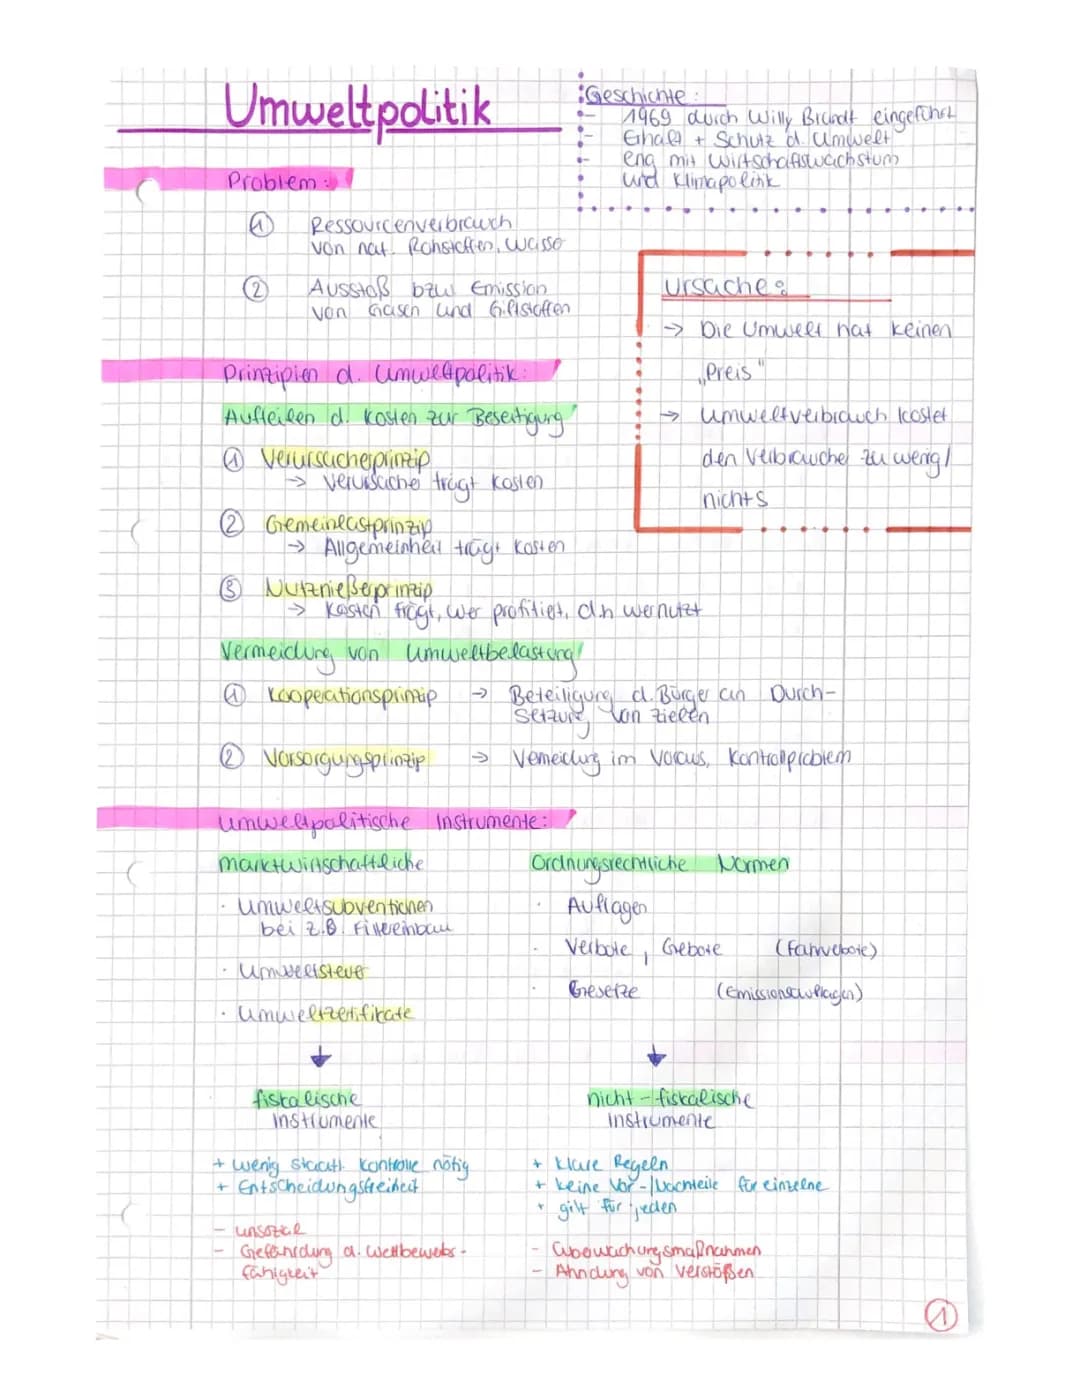 Umweltpolitik
Geschichte:
- 1969 durch Willy Brandt eingeführt
- Erhalt + Schutz d. Umwelt
- eng mit Wirtschaftswachstum
und Klimapolitik
Problem:
① Ressourcenverbrauch
von nat. Rohstoffen, Wasser
② Ausstoß bzw Emission
von Gasen und Giftstoffen
Ursache:
→ Die Umwelt hat keinen
„Preis"
→ Umweltverbrauch kostet
den Verbraucher zu wenig/
nichts
Prinzipien d. Umweltpolitik:
Aufteilen d. Kosten zur Beseitigung
① Verursacherprinzip
→ Verursacher trägt Kosten
② Gemeinlastprinzip
→ Allgemeinheit trägt Kosten
③ Nutznießerprinzip
→ Kosten trägt, wer profitiert, d.h wer nutzt
Vermeidung von Umweltbelastung
① Kooperationsprinzip → Beteiligung d. Bürger an Durch-
setzung von Zielen
② Vorsorgungsprinzip → Vermeidung im Voraus, Kontrollproblem
Umweltpolitische Instrumente:
marktwirtschaftliche
· Umweltsubventionen
bei z.B. Filtereinbau
· Umweltsteuer
· Umweltzertifikate
↓
fiskalische
Instrumente
+ wenig staatl. Kontrolle nötig
+ Entscheidungsfreiheit
- unsozial
- Gefährdung d. Wettbewerbs-
fähigkeit
Ordnungsrechtliche Normen
· Auflagen
· Verbote, Gebote (Fahrverbote)
· Gesetze (Emissionsauflagen)
↓
nicht-fiskalische
Instrumente
+ klare Regeln
+ keine Vor-/Nachteile für einzelne
+ gilt für jeden
- Überwachungsmaßnahmen
- Ahndung von Verstößen
①